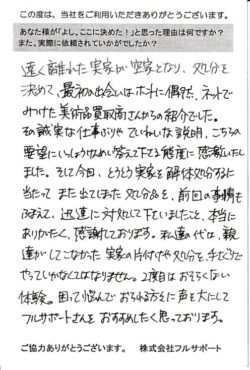 この度は、当社をご利用いただきありがとうございます。
あなた様が「よし、ここに決めた！」と思った理由は何ですか？
また、実際に依頼されていかがでしたか？
遠く離れた実家が空家となり、処分を
決めて、最初の出会いはホントに偶然、ネットで
みつけた美術品買取商さんからの紹介でした。
その誠実な仕事ぶりやていねいな説明、こちらの
要望にいっしょうけんめい答えて下さる態度に感激いたし
ました。そして今回、とうとう実家を解体処分するに
当たって また出てきた処分品を、前回の事情も
ふまえて、迅速に対処して下さいましたこと、本当に
ありがたく、感謝しております。私達の代は、親
達がしてこなかった実家の片付けや処分を、手さぐりで
やっていかなくてはなりません。2度目はおそらくない
体験。困って悩んでおられる方々に声を大にして
フルサポートさんをおすすめしたく思っております。
ご協力ありがとうございます。 株式会社フルサポート